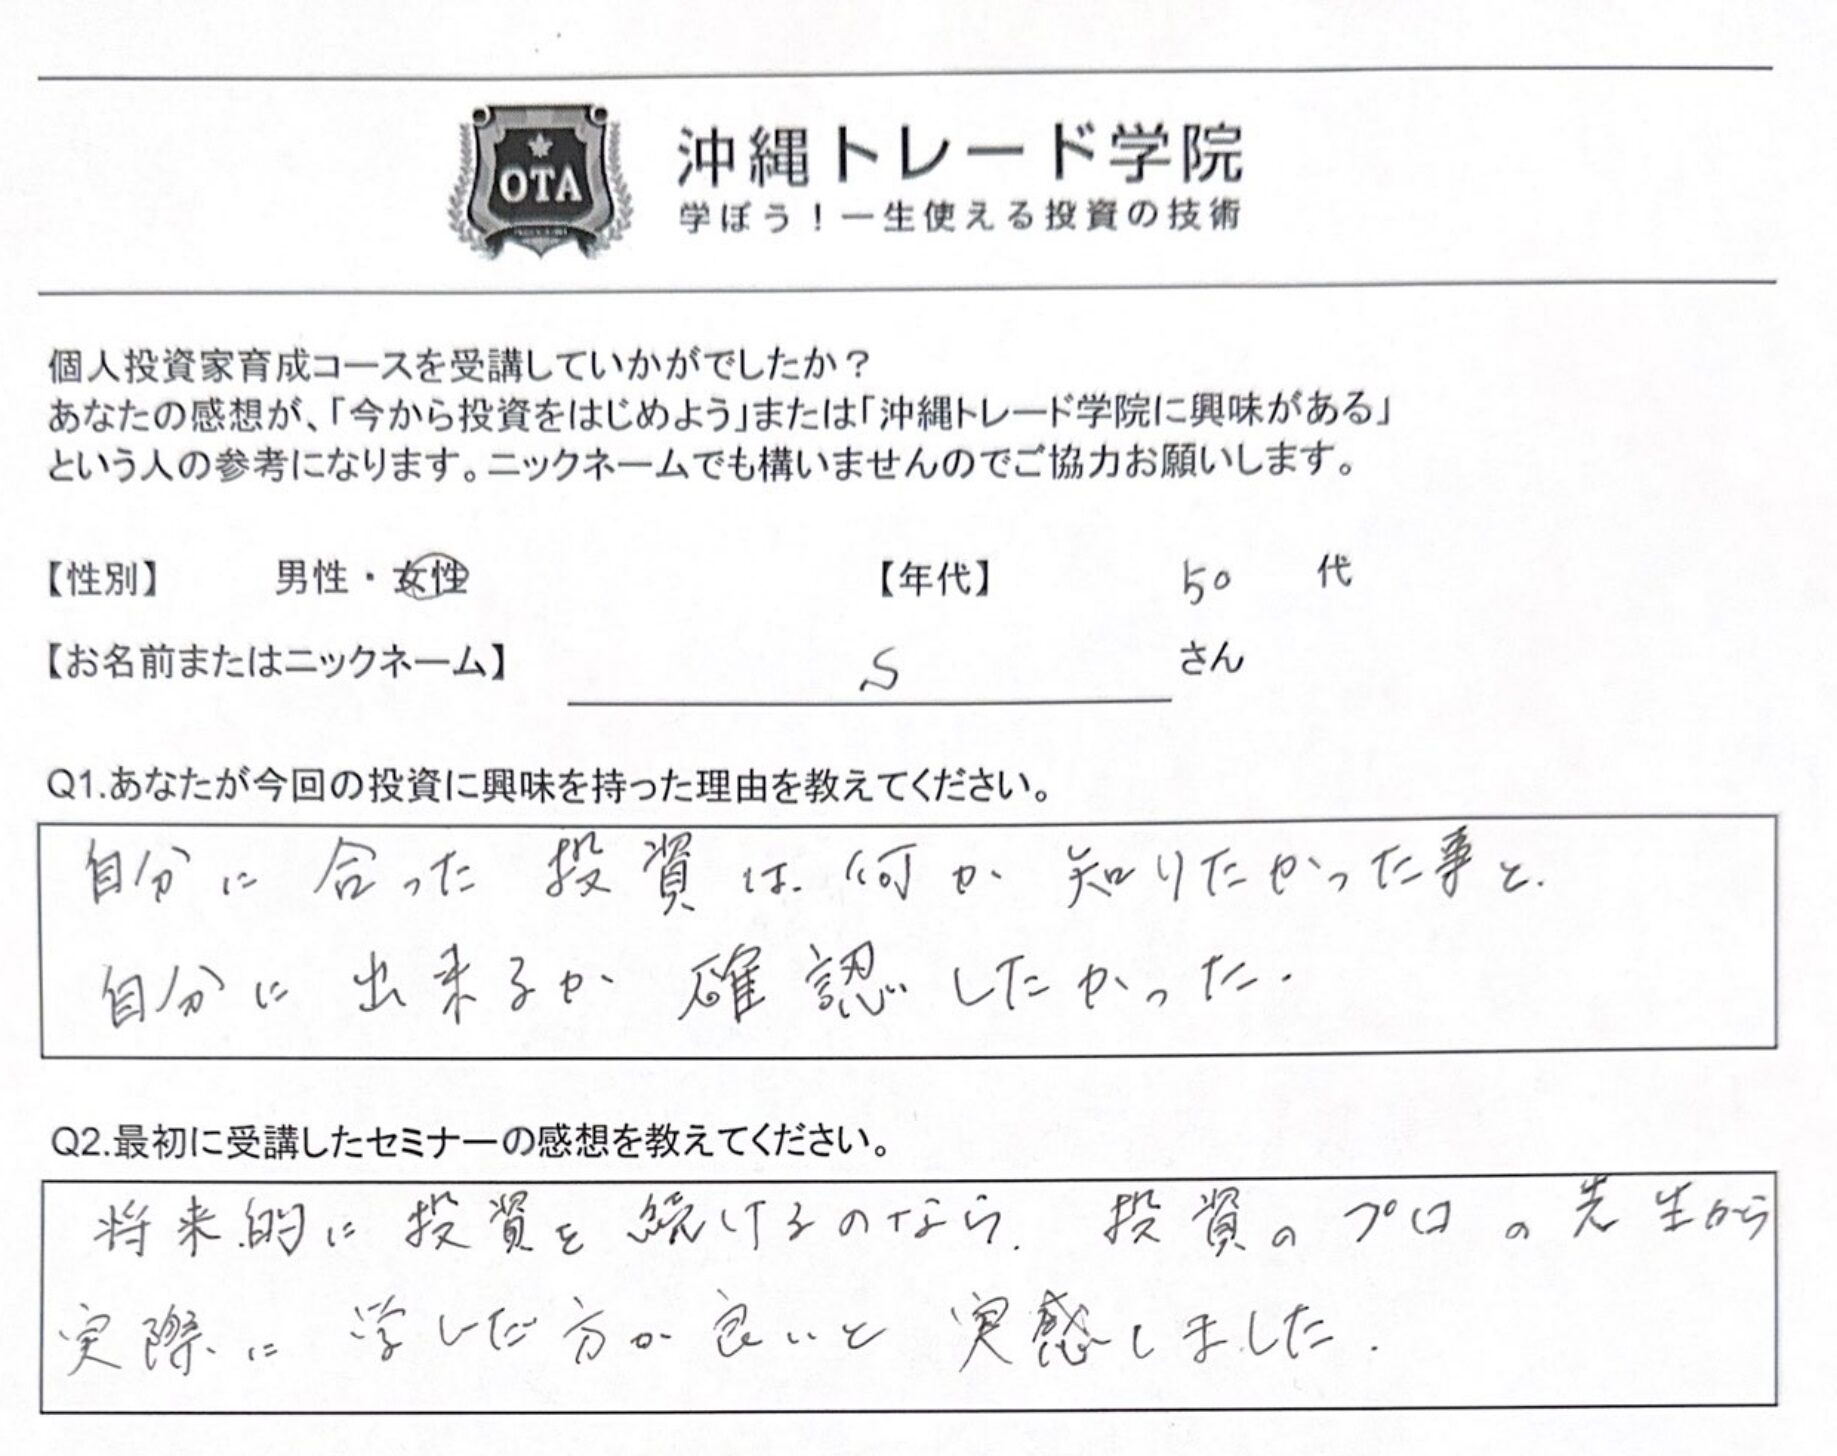 OTA
沖縄トレード学院
学ぼう！一生使える投資の技術
個人投資家育成コースを受講していかがでしたか？
あなたの感想が、「今から投資をはじめよう」または「沖縄トレード学院に興味がある」
という人の参考になります。ニックネームでも構いませんのでご協力お願いします。
【性別】 男性・女性 【年代】 50 代
【お名前またはニックネーム】 S さん
Q1.あなたが今回の投資に興味を持った理由を教えてください。
自分に合った投資は何か知りたかった事と、
自分に出来るか確認したかった。
Q2.最初に受講したセミナーの感想を教えてください。
将来的に投資を続けるのなら、投資のプロの先生から
実際に学んだ方が良いと実感しました。